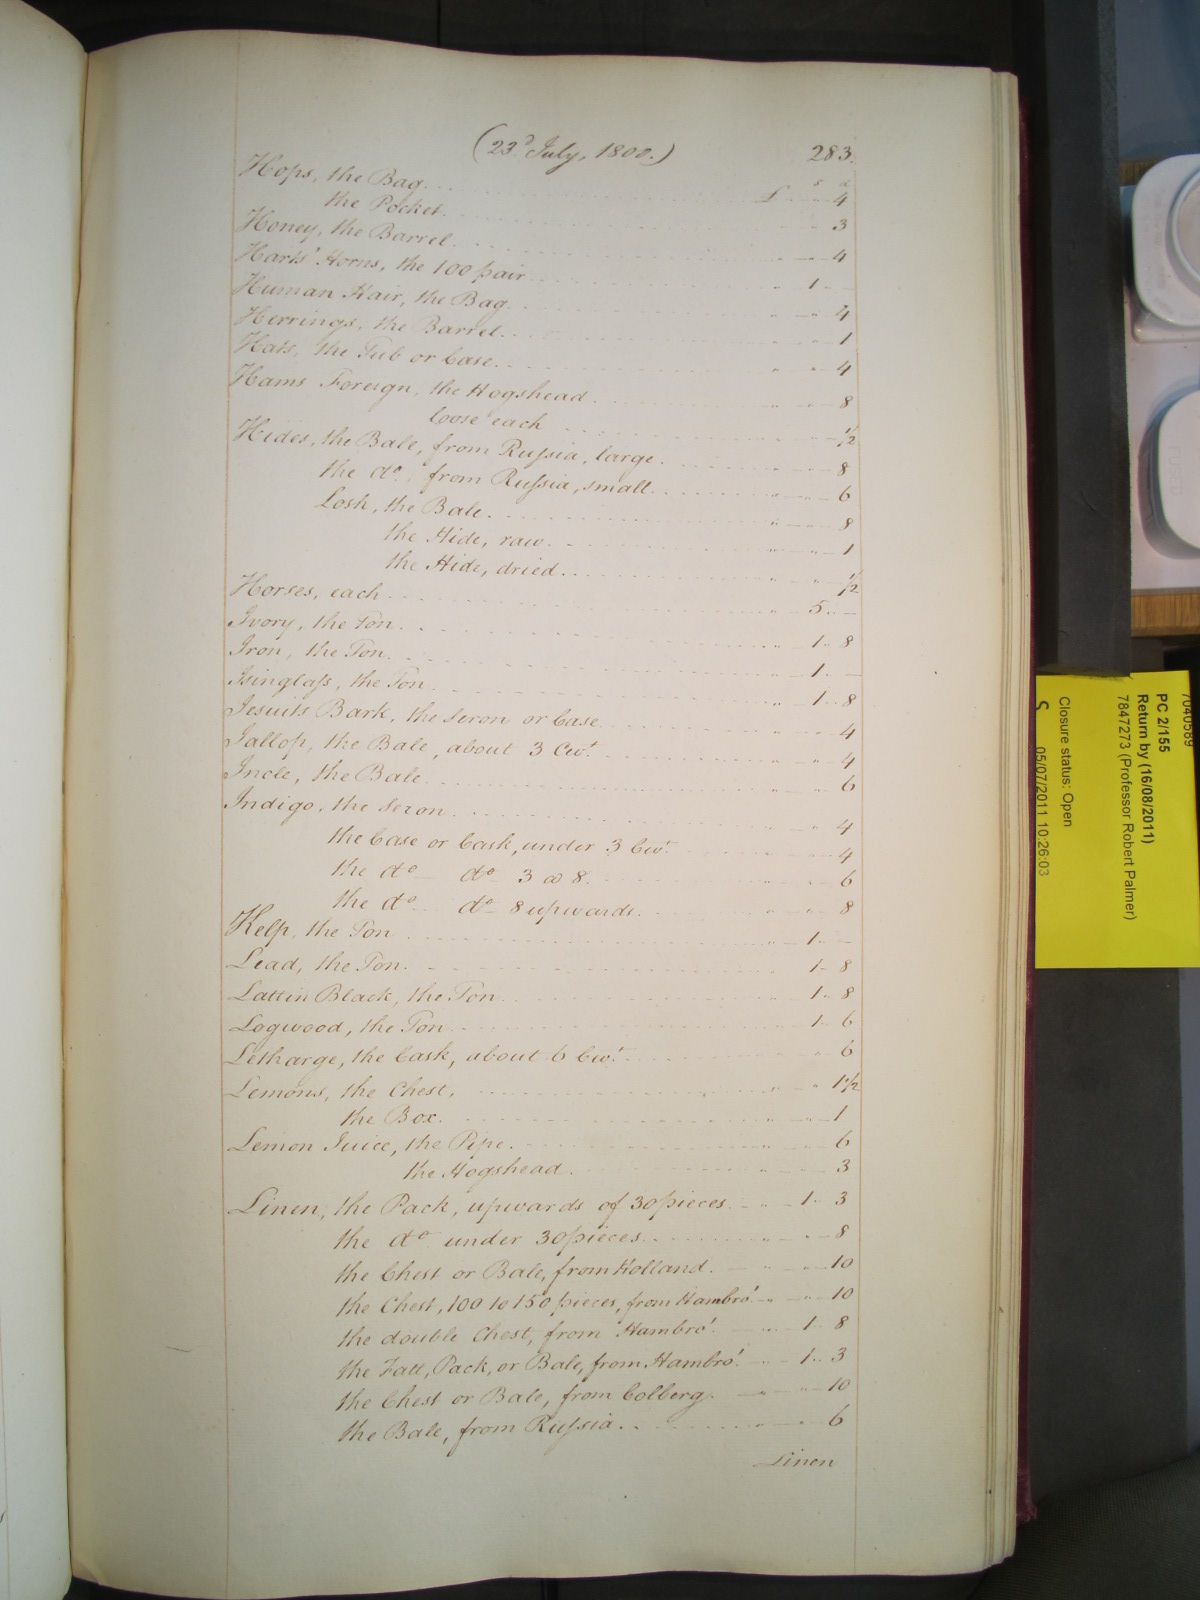 (23ᵈ July, 1800.) 283.
s d
Hops, the Bag £ " — 4
the Pocket " — 3
Honey, the Barrel " — 4
Harts' Horns, the 100 pair " 1 —
Human Hair, the Bag " " 4
Herrings, the Barrel " " — 1
Hats, the Tub or Case " " — 4
Hams Foreign, the Hogshead " " — 8
loose each " — ½
Hides, the Bale, from Russia, large " " — 8
the dº. from Russia, small " — " — 6
Losh, the Bale " — " — 8
the Hide, raw " — " — 1
the Hide, dried " " ½
Horses, each " — 5 " —
Ivory, the Ton " — 1 " 8
Iron, the Ton " — 1 " —
Isinglass, the Ton " — 1 " 8
Jesuits Bark, the Seron or Case " " — 4
Jallop, the Bale, about 3 Cwᵗ. " " — 4
Incle, the Bale " " — 6
Indigo, the Seron " " — 4
the Case or Cask, under 3 Cwᵗ. " — 4
the dº dº 3 @ 8 " — 6
the dº dº 8 upwards " " — 8
Kelp, the Ton " — 1 " —
Lead, the Ton 1 " 8
Lattin Black, the Ton " — 1 " 8
Logwood, the Ton 1 " 6
Letharge, the Cask, about 6 Cwᵗ. " — 6
Lemons, the Chest, " " 1½
the Box " " — 1
Lemon Juice, the Pipe " — 6
the Hogshead " " — 3
Linen, the Pack, upwards of 30 pieces " — 1 " 3
the dº under 30 pieces " " — 8
the Chest or Bale, from Holland. " — 10
the Chest, 100 to 150 pieces, from Hambro' " — " — 10
the double Chest, from Hambro'. " — 1 " 8
the Fatt, Pack, or Bale, from Hambro'. " — 1 " 3
the Chest or Bale, from Colberg. — " — " — 10
the Bale, from Russia " — " 6
Linen
7040589
PC 2/155
Return by (16/08/2011)
7847273 (Professor Robert Palmer)
Closure status: Open
S 05/07/2011 10:26:03